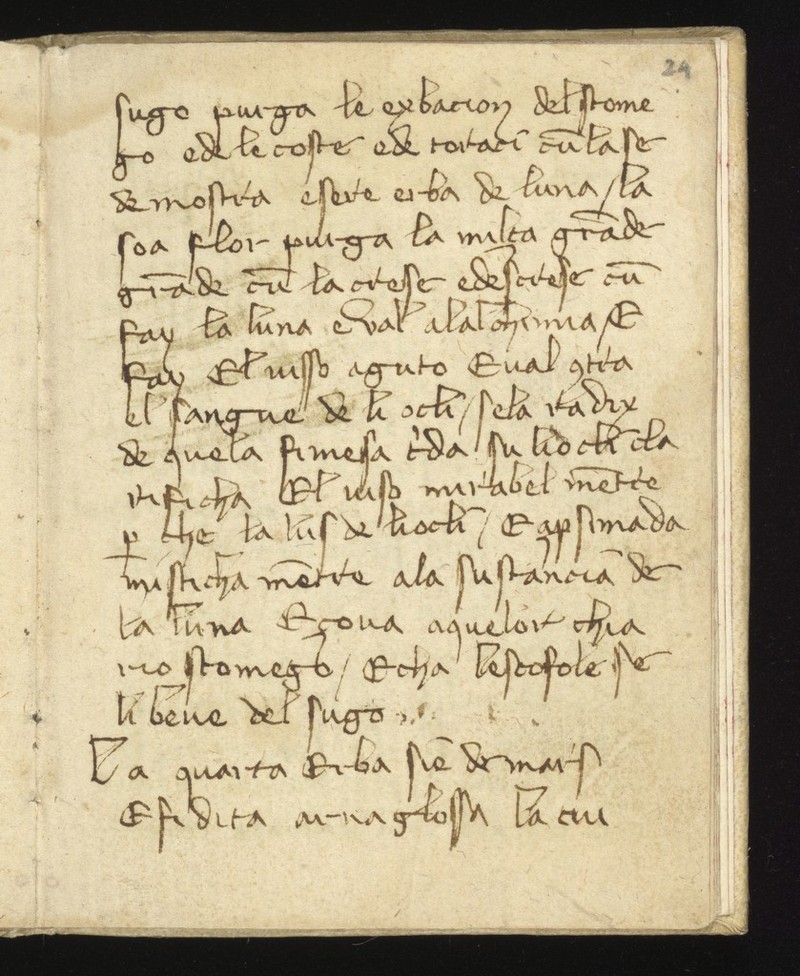 24
sugo purga le exbacion del stome
go ede le coste ede toraci cū la se
demostra esere erba de luna / la
soa flor purga la milça grāde
grāde cū la crese edescrese cū
fay la luna e val alalchimia / E
fay El visso aguto E val 9tra
el sangue de li ochi / se la radix
de quela firmesa
rificha El viso mirabel mētre
p che la lus de liochi / E
mistichamētre ala sustancia de
la luna E çova aquelor chia
rio stomego / E cha le scofole se
li beve del sugo
La quarta Erba siē de mars
E fi dita arnaglossa la cui